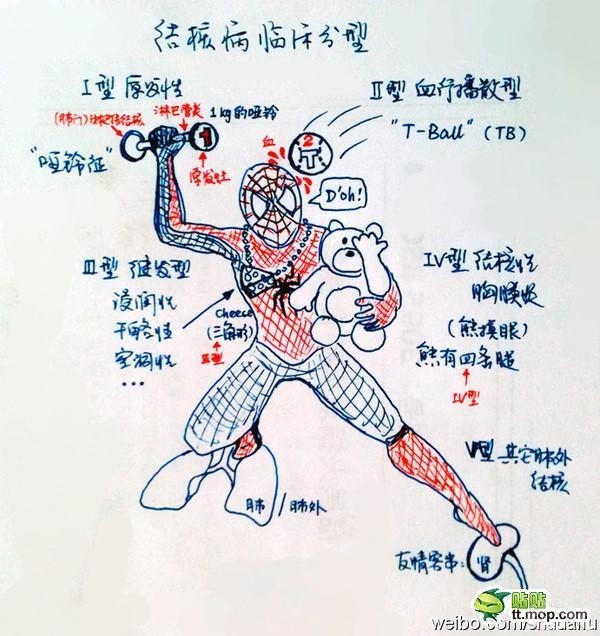 结核病临床分型
I型 原发性
II型 血行播散型
(肺门)淋巴结结核
淋巴管炎
1kg的哑铃
"T-Ball" (TB)
"哑铃征"
1
2
T
血
原发灶
D'oh!
III型 继发型
浸润性
干酪性
空洞性
...
cheese
(三角形)
III型
IV型 结核性
胸膜炎
(熊摸眼)
熊有四条腿
IV型
V型 其它肺外
结核
肺/肺外
友情客串:
肾
贴贴
tt.mop.com